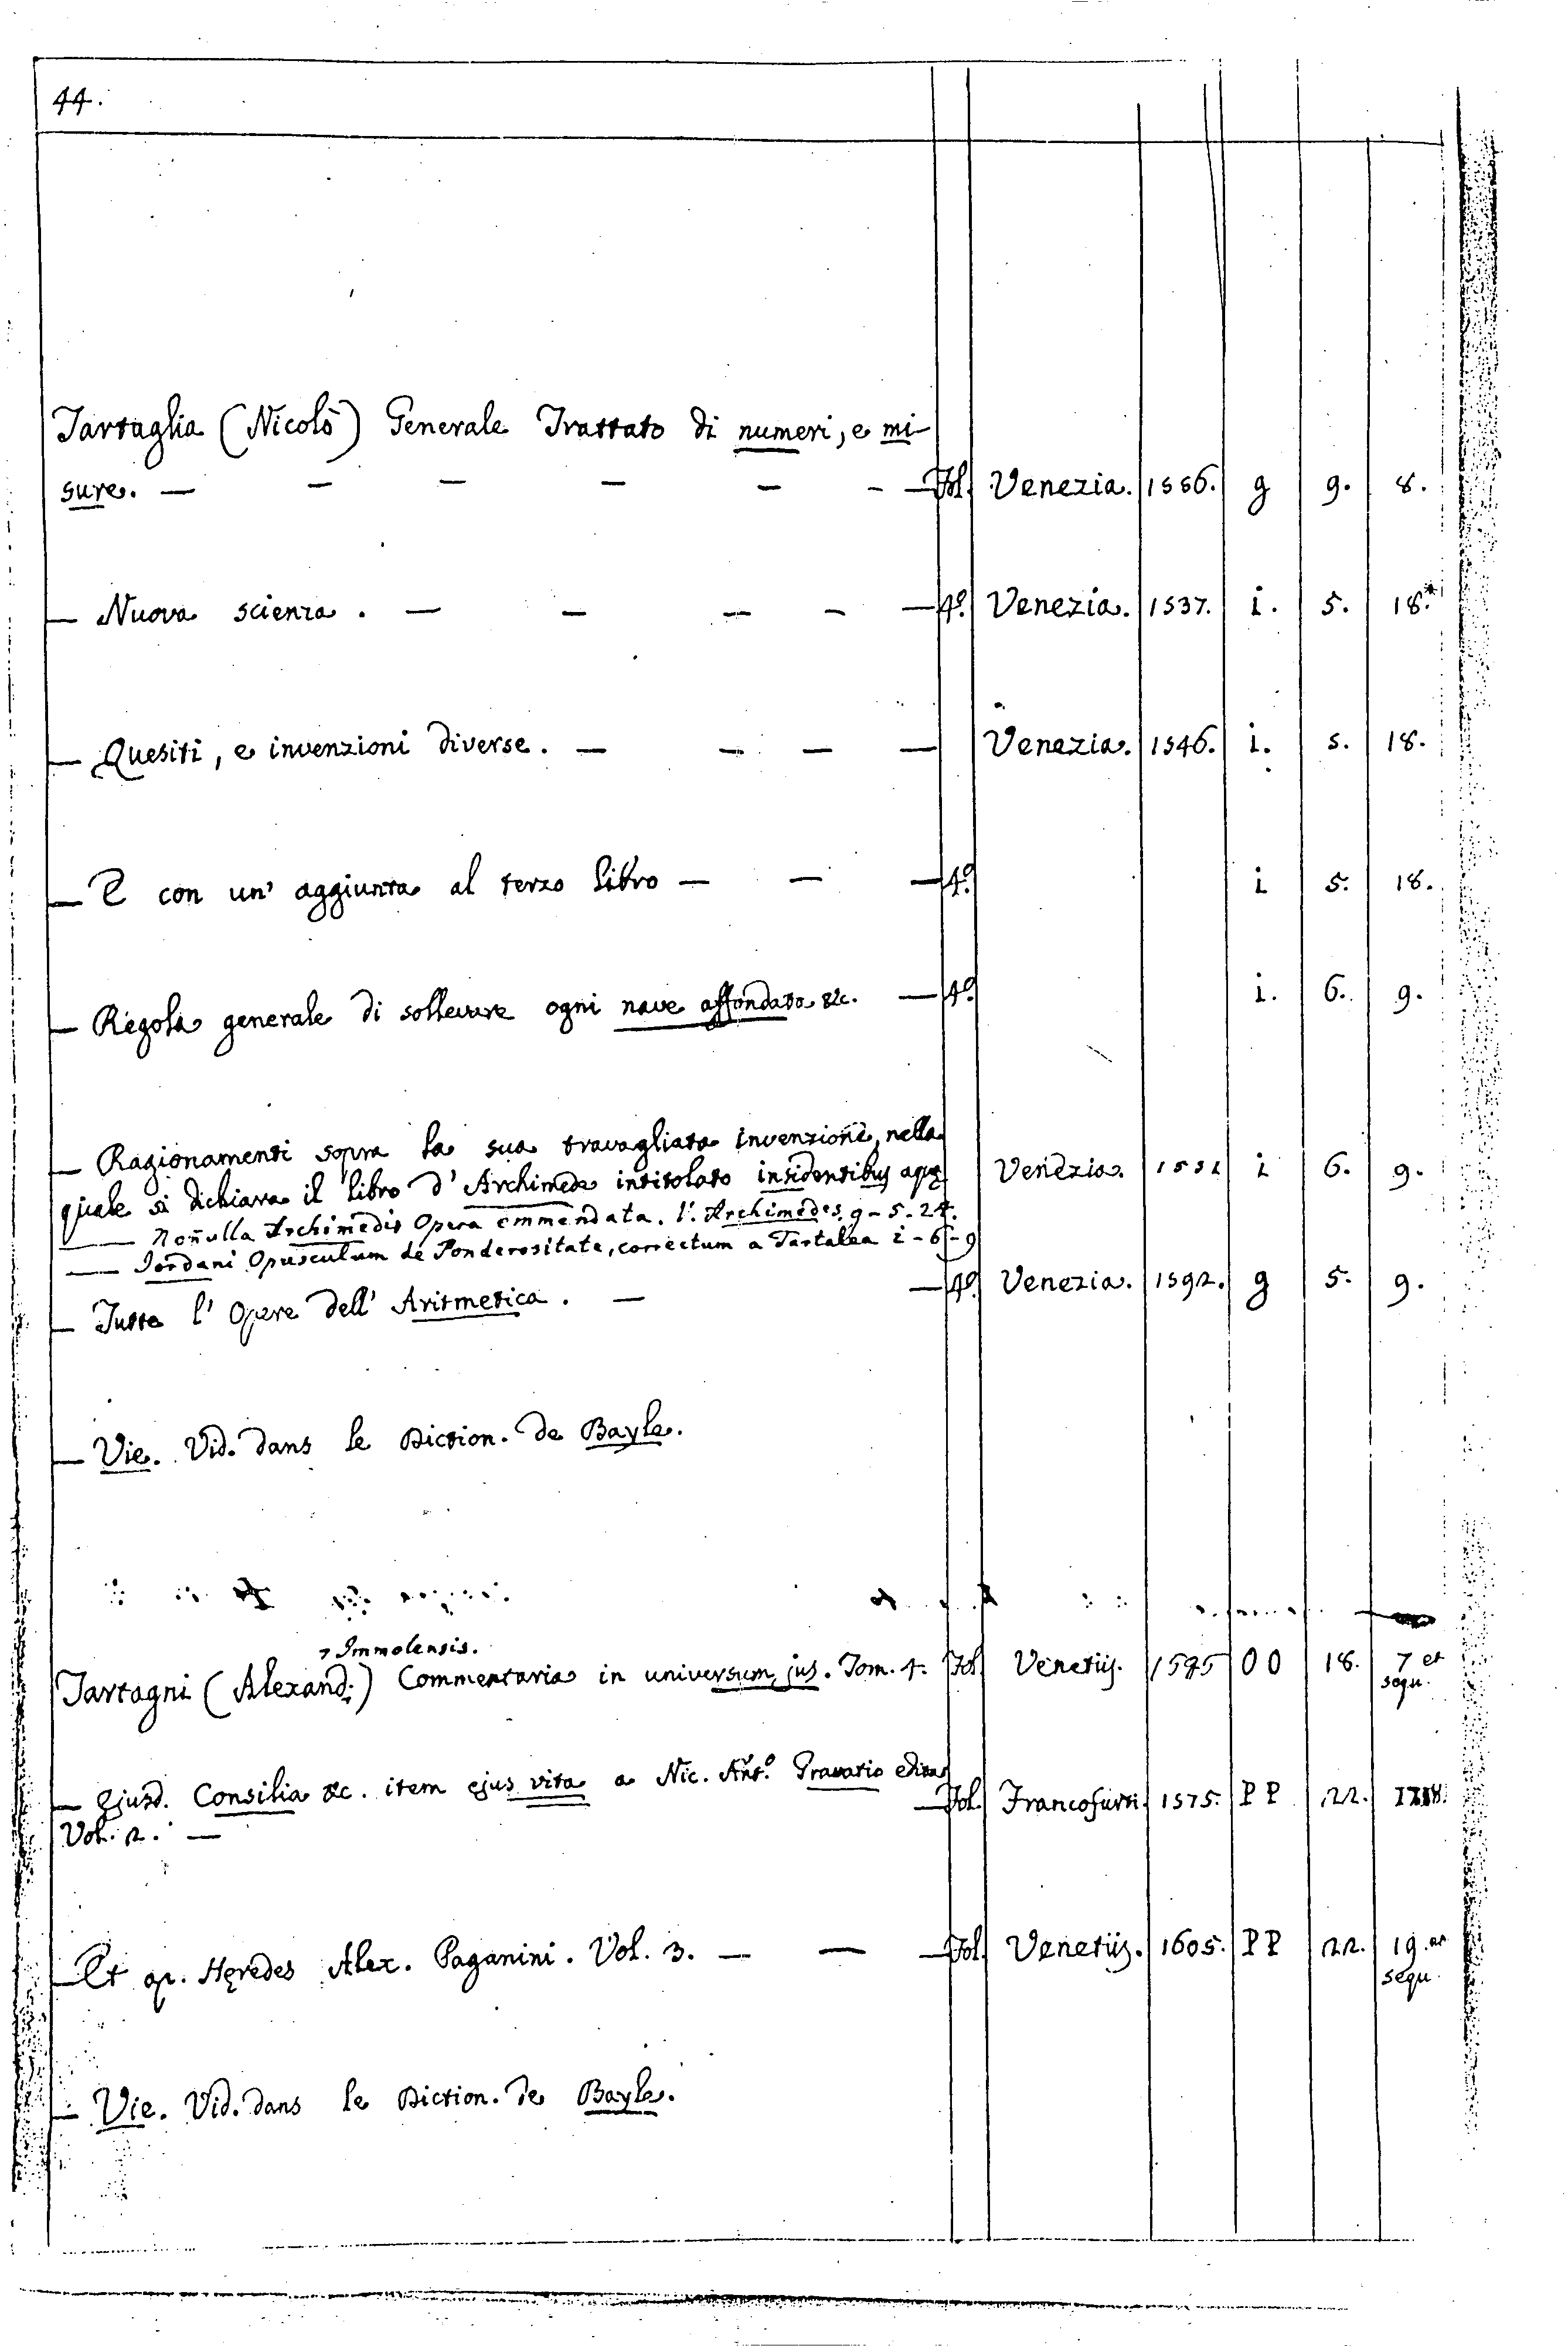 44.
Tartaglia (Nicolò) Generale Trattato di numeri, e mi-
sure. — — — — — - — Fol. Venezia. 1556. g 9. 8.
— Nuova scienza. — — — — — 4º. Venezia. 1537. i. 5. 18.*
— Quesiti, e invenzioni diverse. — — — — Venezia. 1546. i. 5. 18.
— E con un' aggiunta al terzo libro — — — 4º. i 5. 18.
— Regola generale di sollevare ogni nave affondata &c. — 4º. i. 6. 9.
— Ragionamenti sopra la sua travagliata invenzione, nella
quale si dichiara il libro d'Archimede intitolato insidentibus aquæ Venezia. 1551 i 6. 9.
— Noñulla Archimedis Opera emmendata. V. Archimedes. g - 5. 24.
— Jordani Opusculum de Ponderositate, correctum a Tartalea i - 6 - 9
— Tutte l'Opere dell'Aritmetica. — — 4º. Venezia. 1592. g 5. 9.
— Vie. Vid. dans le Diction. de Bayle.
Immolensis.
Tartagni (Alexand.) Commentaria in universum jus. Tom. 4. Fol Venetiis. 1595 OO 18. 7 et
sequ.
— Ejusd. Consilia &c. item ejus vita a Nic. Ant.º Gravatio edita
Vol. 2. — — Fol. Francofurti. 1575. PP 22.
— Et ap. Hęredes Alex. Paganini. Vol. 3. — — — Fol. Venetiis. 1605. PP 22. 19. et
sequ.
— Vie. Vid. dans le Diction. de Bayle.